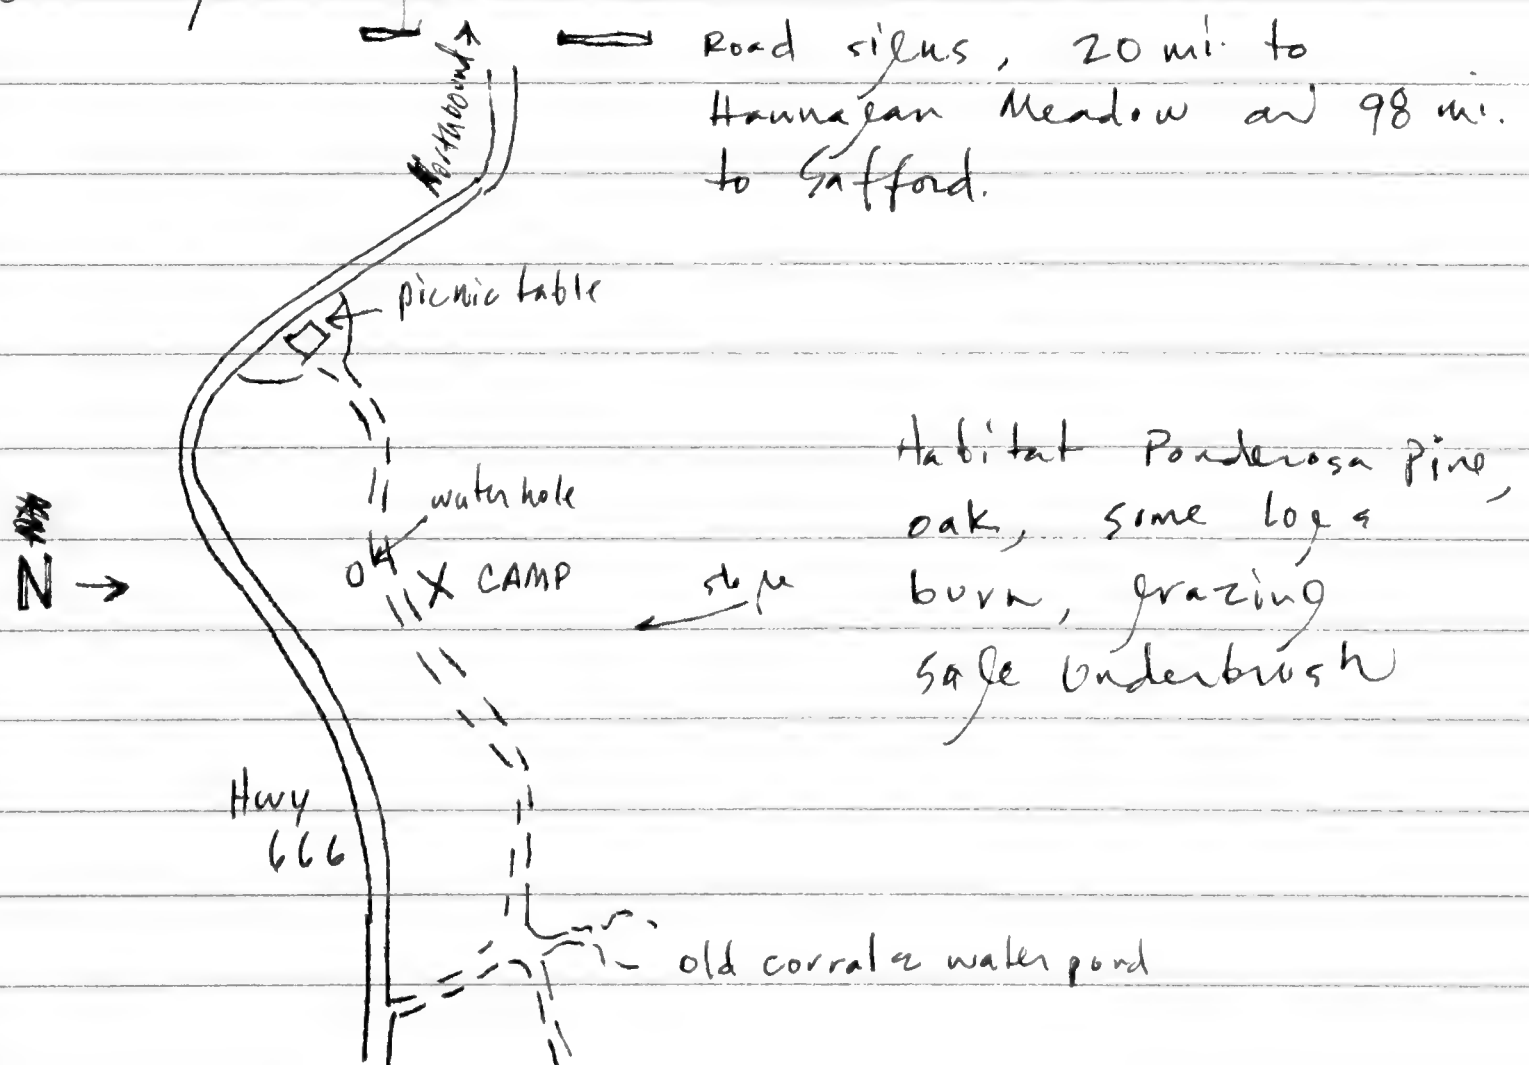 Road signs, 20 mi. to
Hannagan Meadow and 98 mi.
to Safford.
Northbound
picnic table
Habitat Ponderosa Pine,
oak, some logs
burn, grazing
sage underbrush
water hole
N → X CAMP
slope
Hwy
666
old corral & water pond